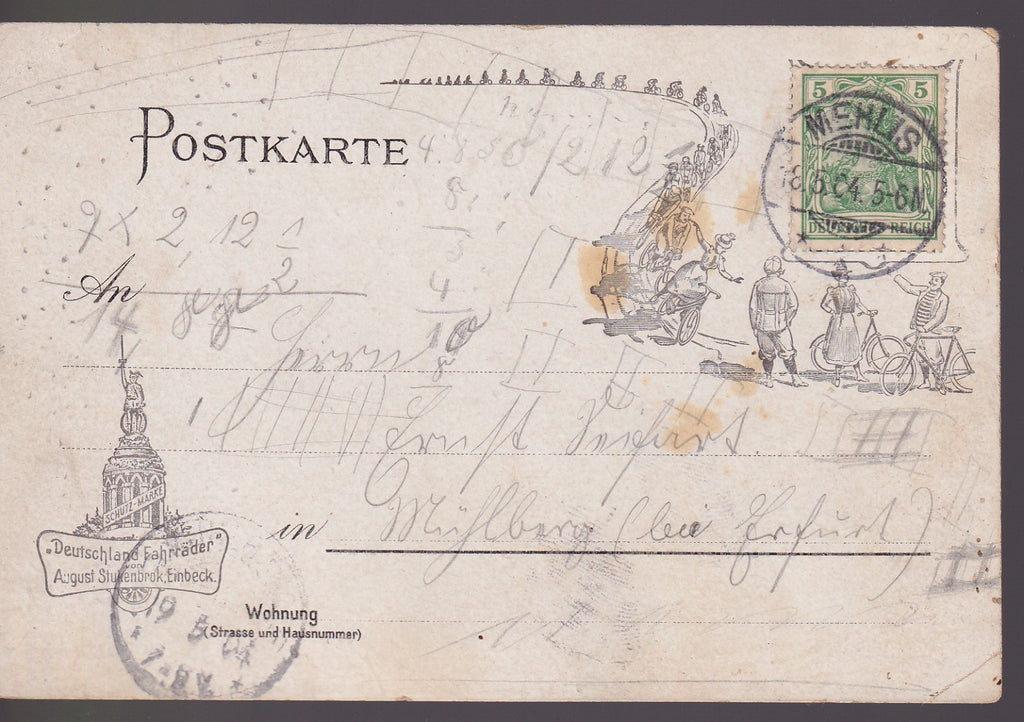 POSTKARTE
5 5
DEUTSCHES REICH
MEHLIS
18.5.04. 5-6N
4.850/2 12 1
8
7 X 2, 12 1
5
An
2
4
14
10
Herrn
8
Ernst Seifart.
SCHUTZ-MARKE
in Mühlberg (bei Erfurt)
"Deutschland Fahrräder"
von
August Stukenbrok, Einbeck.
Wohnung
(Strasse und Hausnummer)
19 5 04
7-8V